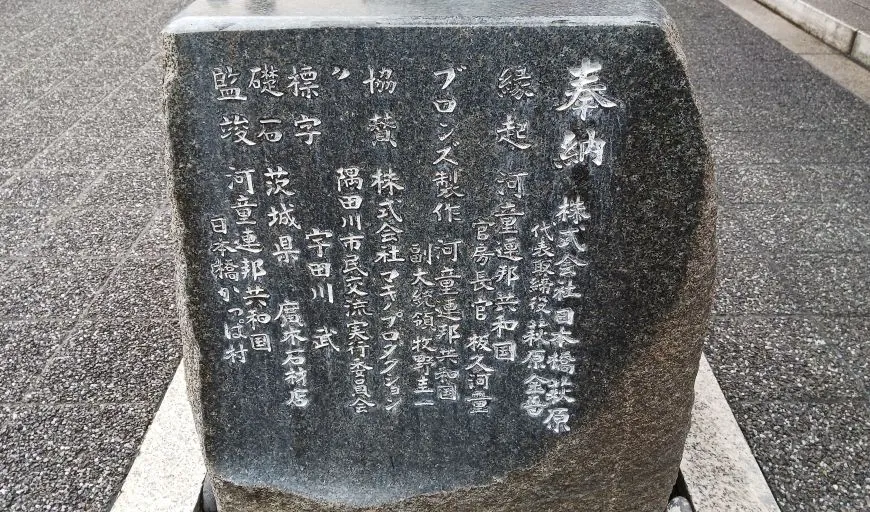 奉納 株式会社日本橋萩原
代表取締役 萩原金吾
縁起 河童連邦共和国
官房長官 板久河童
ブロンズ製作 河童連邦共和国
副大統領 牧野圭一
協賛 株式会社マキノプロダクション
〃 隅田川市民交流実行委員会
標字 宇田川 武
礎石 茨城県 廣木石材店
監竣 河童連邦共和国
日本橋かっぱ村